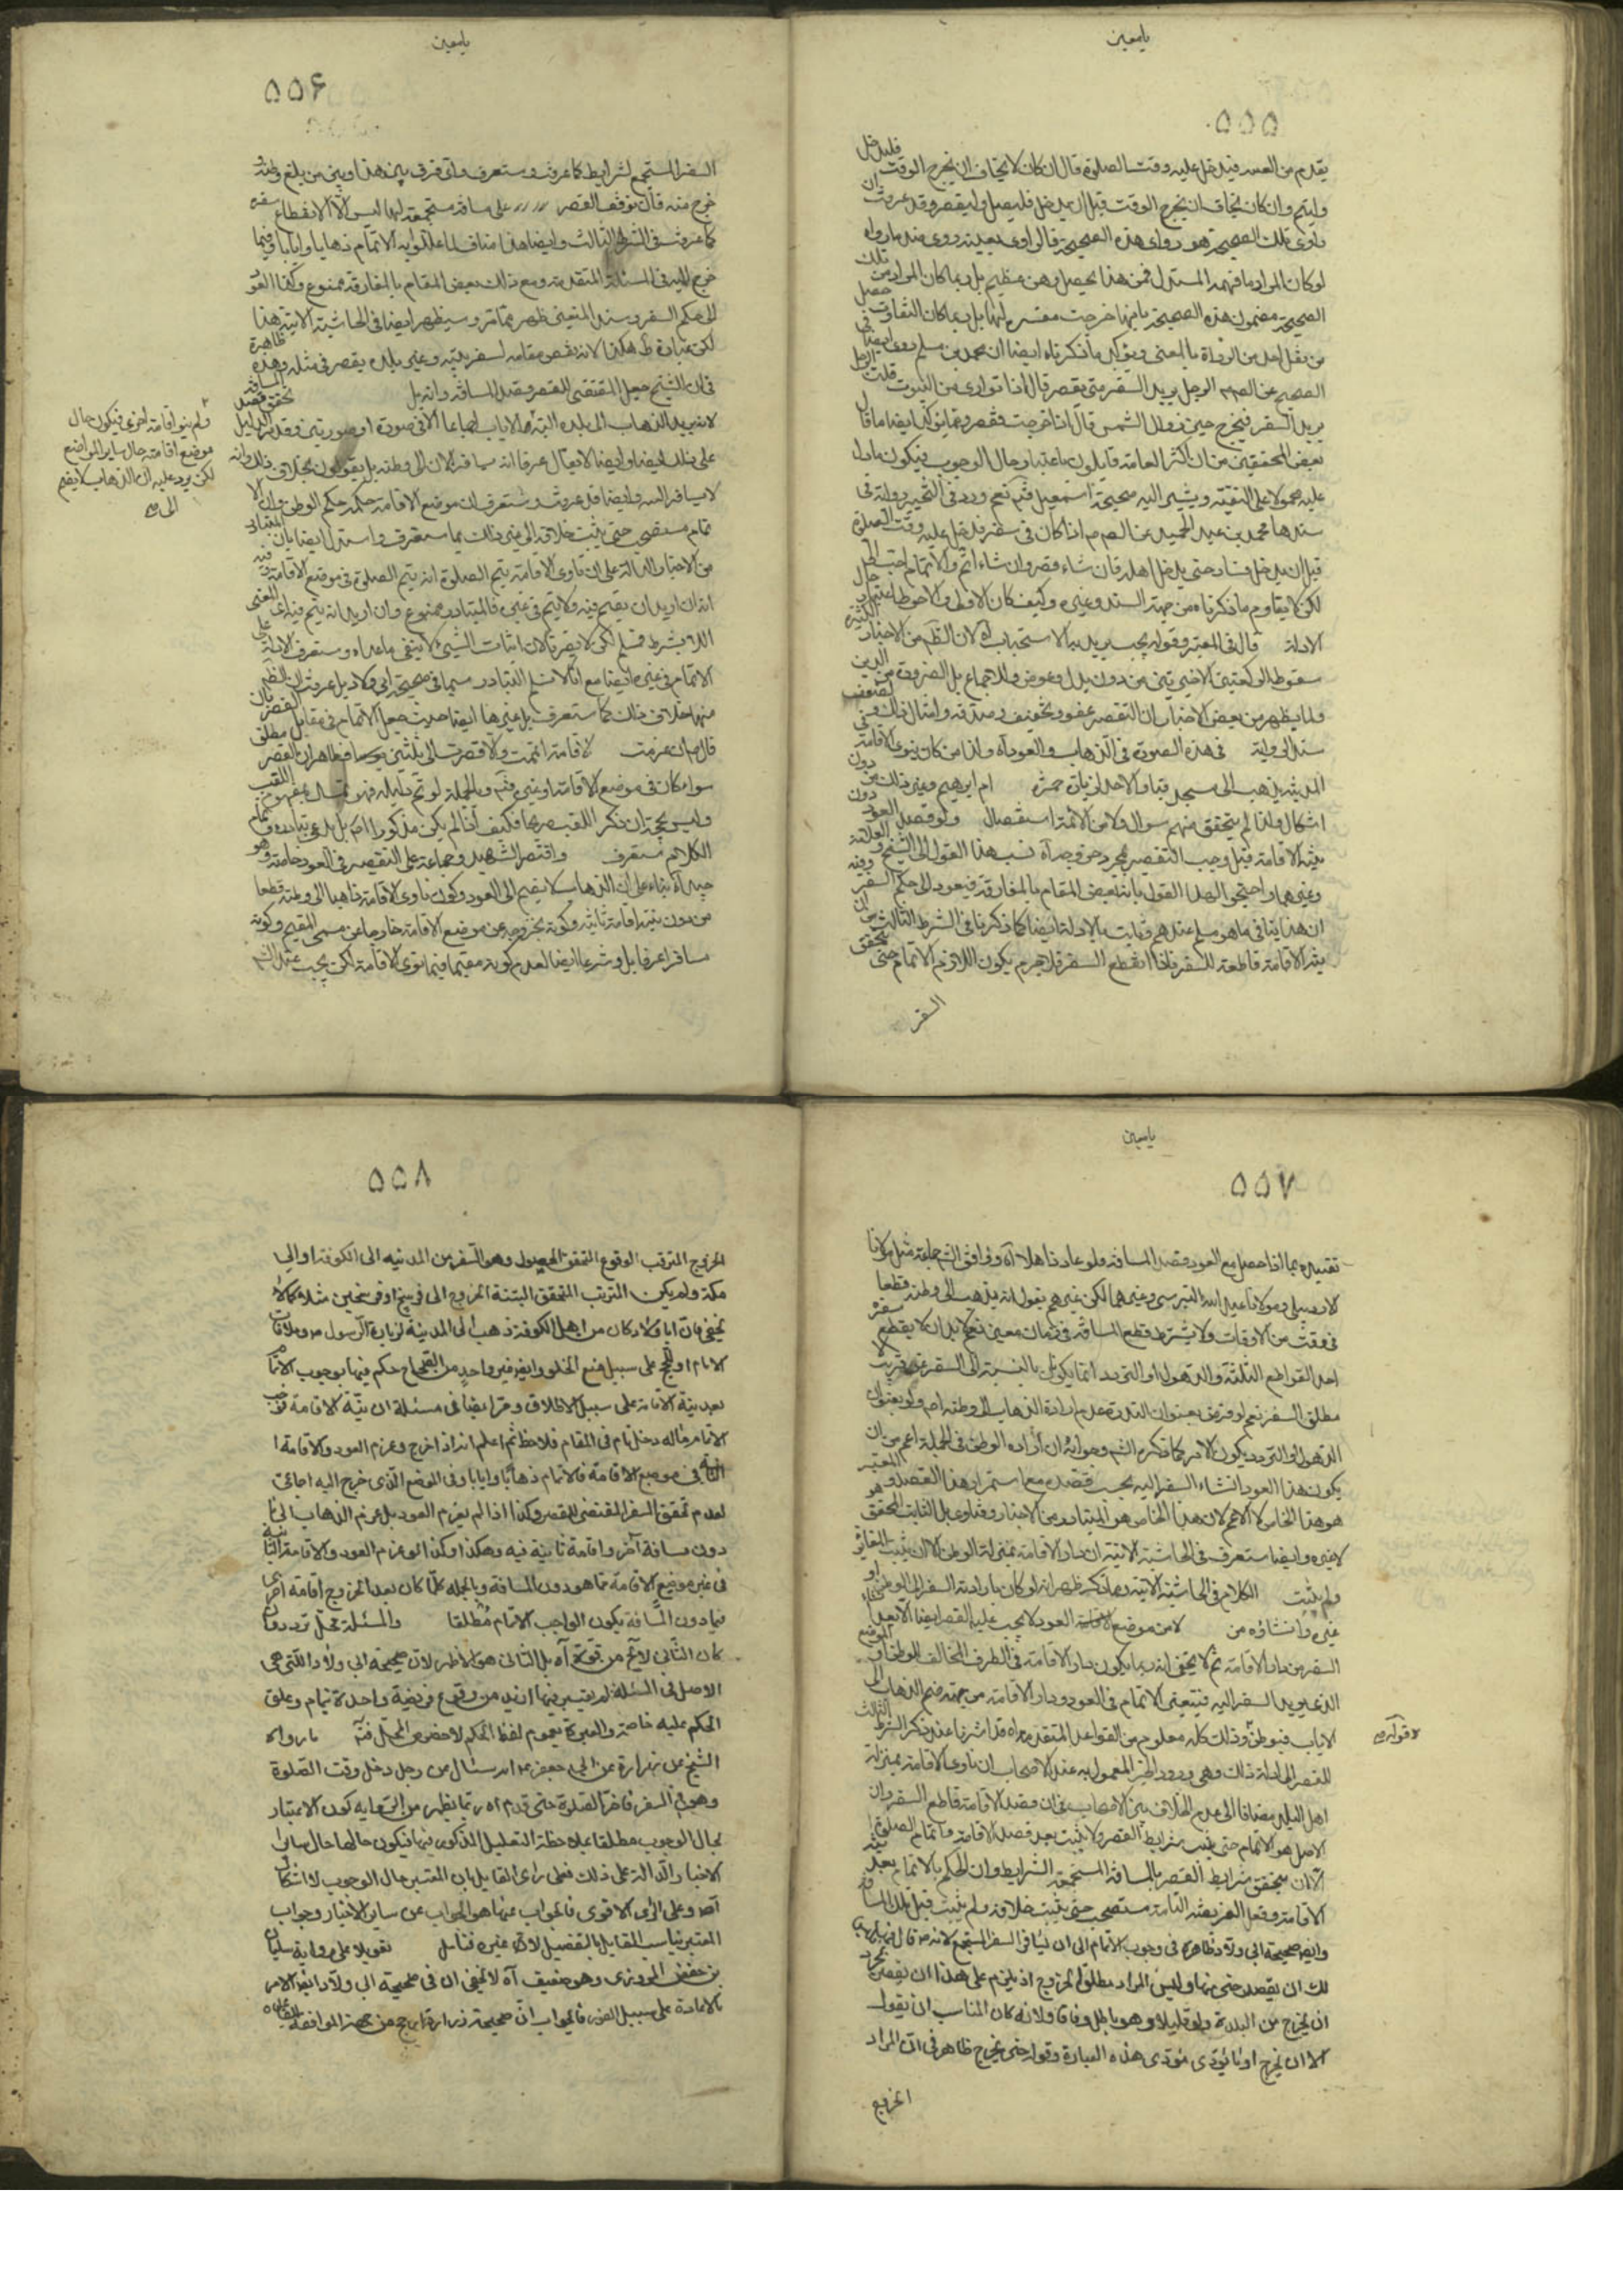 يامعين
۵۵۵
يقدم من السفر فيدخل عليه وقت الصلوة قال ان كان لا يخاف ان يخرج الوقت فليدخل
وليتم وان كان يخاف ان يخرج الوقت قبل ان يدخل فليصل وليقصر وقد عرفت ان
راوى تلك الصحيحة هو رواى هذه الصحيحة فالراوى بعينه روى منه ما رواه
لو كان المراد ما فهمه المستدل فمن هذا يحصل وهن عظيم بل ربما كان المراد من تلك
الصحيحة مضمون هذه الصحيحة بانها خرجت مفسرة لها بل ربما كان التفاوت حصل
من نقل احد من الرواة بالمعنى ويؤكد ما ذكرناه ايضا ان محمد بن مسلم روى ايضا فى
الصحيح عن الرجل يريد السفر متى يقصر قال اذا توارى من البيوت قلت الرجل
يريد السفر فيخرج حين تزول الشمس قال اذا خرجت فقصر
بعض المحققين من ان اكثر العامة قايلون باعتبار حال الوجوب فيكون ما دل
عليه محمولا على التقية ويشير اليه صحيحة اسمعيل فتم نعم ورد فى التخيير رواية فى
سندها محمد بن عبد الحميد عن اذا كان فى سفر فدخل عليه وقت الصلوة
قبل ان يدخل فسار حتى يدخل اهله فان شاء قصر وان شاء اتم والاتمام احب الى
لكن لا يقاوم ما ذكرناه من جهة السند وغيره وكيف كان الاولى والاحوط اعتبار حال
الادلة قال فى المعتبر وقوله يجب يريد به الاستحباب آه لان الظم من الاخبار الكثيرة
سقوط الركعتين الاخيرتين من دون بدل وعوض وللاجماع بل الضرورة من الدين
ولما يظهر من بعض الاخبار ان التقصير عفو وتخفيف وصدقة وامثال ذلك
سند الرواية فى هذه الصورة فى الذهاب والعود آه ولذا من كان ينوى الاقامة فى
المدينة يذهب الى مسجد قبا والاحد لزيارة حمزة ام ابرهيم وغير ذلك من دون
اشكال ولذا لم يتحقق منهم سؤال ولا من الائمة استفصال ولو قصد العود دون
نية الاقامة قيل وجب التقصير لمجرد خروجه آه نسب هذا القول الى الشيخ والعلامة
وغيرهما واحتج لهذا القول بانه نقض المقام بالمفارقة فيعود الى حكم السفر وفيه
ان هذا ينافى ما هو مسلم عندهم وثابت بالادلة ايضا كما ذكرنا فى الشرط الثالث من ان
نية الاقامة قاطعة للسفر فاذا انقطع السفر فلا جرم يكون اللازم الاتمام حتى يتحقق
السفر
يامعين
۵۵۶
السفر المستجمع لشرايط كما عرفت وستعرف واى فرق بين هذا وبين من بلغ وطنه و
خرج منه فان توقف القصر على مسافة مستجمعة لها ليس الا لانقطاع سفره
كما عرفت فى الشرط الثالث وايضا هذا مناف لما عللوا به الاتمام ذهابا وايابا وفيما
خرج اليه فى المسئلة المتقدمة ومع ذلك نقض المقام بالمفارقة ممنوع وكذا العود
الى حكم السفر وسند المنعين ظهر مما مر وسيظهر ايضا فى الحاشية الاتية هذا
لكن عبارة ط هكذا لانه نقض مقامه لسفر بينه وبين بلده يقصر فى مثله وهذه ظاهرة
فى ان الشيخ جعل المقتضى للقصر وقصد المسافة وانه بل تحقق قصد المسافة
لانه يريد الذهاب الى بلده البتة
على ذلك ايضا وايضا لا يقال عرفا انه مسافر الان الى وطنه بل يقولون بخلاف ذلك وانه
لا يسافر اليه وايضا قد عرفت وستعرف ان موضع الاقامة حكمه حكم الوطن وان الا
تمام مستصحب حتى يثبت خلافه الى غير ذلك مما ستعرف واستدل ايضا بان المتبادر
من الاخبار الدالة على ان ناوى الاقامة يتم الصلوة انه يتم الصلوة فى موضع الاقامة وفيه
انه ان اريد ان يتم فيه ولا يتم فى غيره فالمتبادر ممنوع وان اريد انه يتم فيه
اللا بشرط فمسلم لكن لا يضرنا لان اثبات الشيئ لا ينفى ما عداه وستعرف الادلة على
الاتمام فى غيره ايضا مع انا لا نسلم التبادر سيما فى صحيحة ابى ولاد بل عرفت ان الظم
منها خلاف ذلك كما ستعرف بل غيرها ايضا حيث جعل الاتمام فى مقابل القصر بان
قال ان عزمت لاقامة اتممت والا قصرت الى ثلثين يوما فظاهر ان القصر مطلق
سواء كان فى موضع الاقامة او غيره فتم وبالجملة لو تم دليله فهو تمسك بمفهوم اللقب
وليس بحجة ان ذكر اللقب صريحا فكيف اذا لم يكن مذكورا اصلا بل يدعى تبادره وتمام
الكلام ستعرف واقتصر الشهيد وجماعة على التقصير فى العود خاصة وهو
جيد آه بناء على ان الذهاب لا يضم الى العود وكون ناوى الاقامة ذاهبا الى وطنه قطعا
من دون نية اقامة ثانية وكونه بخروجه عن موضع الاقامة خارجا عن مسمى المقيم وكونه
مسافرا عرفا بل وشرعا ايضا لعدم كونه مقيما فيما نوى الاقامة لكن يجب عند الشـ
ولم ينو اقامة اخرى فيكون حال
موضع اقامته حال ساير المواضع
لكن يرد عليه ان الذهاب لا يضم
الى
يامعين
۵۵۷
تقييده بما اذا حصل مع العود قصد المسافة فلو عاد ذاهلا آه وفى وافق الشـ جماعة مثل مولانا
الاردبيلى ومولانا عبد الله التسترى وغيرهما لكن غيرهم يقول انه يذهب الى وطنه قطعا
فى وقت من الاوقات ولا يشترط قطع المسافة فى زمان معين نعم لا بد ان لا يقطع سفره
احد القواطع الثلثة والذهول او التردد انما يكون بالنسبة الى السفر عن قريب لا
مطلق السفر نعم لو فرض بعنوان الندرة عدم ارادة الذهاب الى وطنه اصلا ولو بعنوان
الذهول او التردد يكون الامر كما ذكره الشـ وجوابه ان ارادة الوطن فى الجملة اعم من ان
يكون هذا العود انشاء السفر اليه بحسب قصده مع استمرار هذا القصد والمعتبر
هو هذا الخاص لا الاعم لان هذا الخاص هو المتبادر من الاخبار وفتاوى بل الثابت المحقق هو
لا غيره وايضا ستعرف فى الحاشية الاتية ان دار الاقامة بمنزلة الوطن الا ان يثبت التغاير
ولم يثبت الكلام فى الحاشية الاتية ومما ذكر ظهر انه لو كان ما ارادته السفر الى الوطن او
غيره وانشاؤه من لا من موضع الاقامة العود لا يجب عليه القصر ايضا الا بعد
السفر من دار الاقامة ثم لا يخفى انه ربما يكون دار الاقامة فى الطرف المخالف للوطن او الموضع
الذى يريد السفر اليه فيتعين الاتمام فى العود ودار الاقامة من جهة ضم الذهاب الى
الاياب فيبطل وذلك كله معلوم من القواعد المتقدمة قد اشرنا عند ذكر الشرط الثالث
للقصر الى ادلة ذلك وهى ورود الخبر المعمول به عند الاصحاب ان ناوى الاقامة بمنزلة
اهل البلد مضافا الى عدم الخلاف بين الاصحاب فى ان قصد الاقامة قاطع السفر وان
الاصل هو الاتمام حتى يثبت شرايط القصر ولا يثبت بعد قصد الاقامة واتمام الصلوة
الا ان يتحقق شرايط القصر بالمسافة المستجمعة الشرايط وان الحكم بالاتمام بعد نية
الاقامة وفعل الفريضة التامة مستصحب حتى يثبت خلافه ولم يثبت قبل تلك المسافة
وايضا صحيحة ابى ولاد ظاهرة فى وجوب الاتمام الى ان يسافر السفر المستجمع لانه قال
لك ان تقصر حتى تخرج منها وليس المراد مطلق الخروج اذ يلزم على هذا ان يقصر بمجرد
ان يخرج من البلدة ولو قليلا وهو باطل وفاقا ولانه كان المناسب ان يقول
الا ان يخرج او ما يؤدى مؤدى هذه العبارة وقوله حتى يخرج ظاهر فى ان المراد
الخروج
۵۵۸
الخروج المترقب الوقوع المتحقق الحصول وهو السفر من المدينة الى الكوفة او الى
مكة ولم يكن المترتب المتحقق البتة الخروج الى فرسخ او فرسخين مثلا كما لا
يخفى فان ابا ولاد كان من اهل الكوفة ذهب الى المدينة لزيارة الرسول ص وملاقات
الامام او للحج على سبيل منع الخلو وايضا غير واحد من الصحاح حكم فيها بوجوب الاتمام
بعد نية الاقامة على سبيل الاطلاق ومر ايضا فى مسئلة ان نية الاقامة توجب
الاتمام ماله دخل تام فى المقام فلاحظ ثم اعلم انه اذا خرج وعزم العود والاقامة
الثانية فى موضع الاقامة فالاتمام ذهابا وايابا وفى الموضع الذى خرج اليه اجماعى
لعدم تحقق السفر المقتضى للقصر وكذا اذا لم يعزم العود بل عزم الذهاب الى ما
دون مسافة آخر واقامة ثانية فيه وهكذا وكذا لو عزم العود والاقامة الثانية
فى غير موضع الاقامة مما هو دون المسافة وبالجملة كلما كان بعد الخروج اقامة اخرى
فيما دون المسافة يكون الواجب الاتمام مطلقا والمسئلة محل تردد وان
كان الثانى لا يخ من قوة آه بل الثانى هو الاظهر لان صحيحة ابى ولاد التى هى
الاصل فى المسئلة لم يعتبر فيها ازيد من وقوع فريضة واحدة بتمام وعلق
الحكم عليه خاصة والعبرة بعموم لفظ الحكم لا خصوص المحل فتم ما رواه
الشيخ عن زرارة عن ابى جعفر ع انه سئل عن رجل دخل وقت الصلوة
وهو فى السفر فاخر الصلوة حتى قدم آه ربما يظهر من الرواية كون الاعتبار
بحال الوجوب مطلقا بملاحظة التعليل المذكور فيها فيكون حالها حال ساير
الاخبار الدالة على ذلك فعلى راى القايل بان المعتبر حال الوجوب لا اشكال
آه وعلى الراى الاقوى فالجواب عنها هو الجواب عن ساير الاخبار وجواب
المعتبر يناسب القايل بالتفصيل لا غيره فتامل تعويلا على رواية سليمان
بن حفص المروزى وهو ضعيف آه لا يخفى ان فى صحيحة ابى ولاد ايضا الامر
بالاعادة على سبيل الفور فالجواب ان صحيحة زرارة ارجح من جهة الموافقة